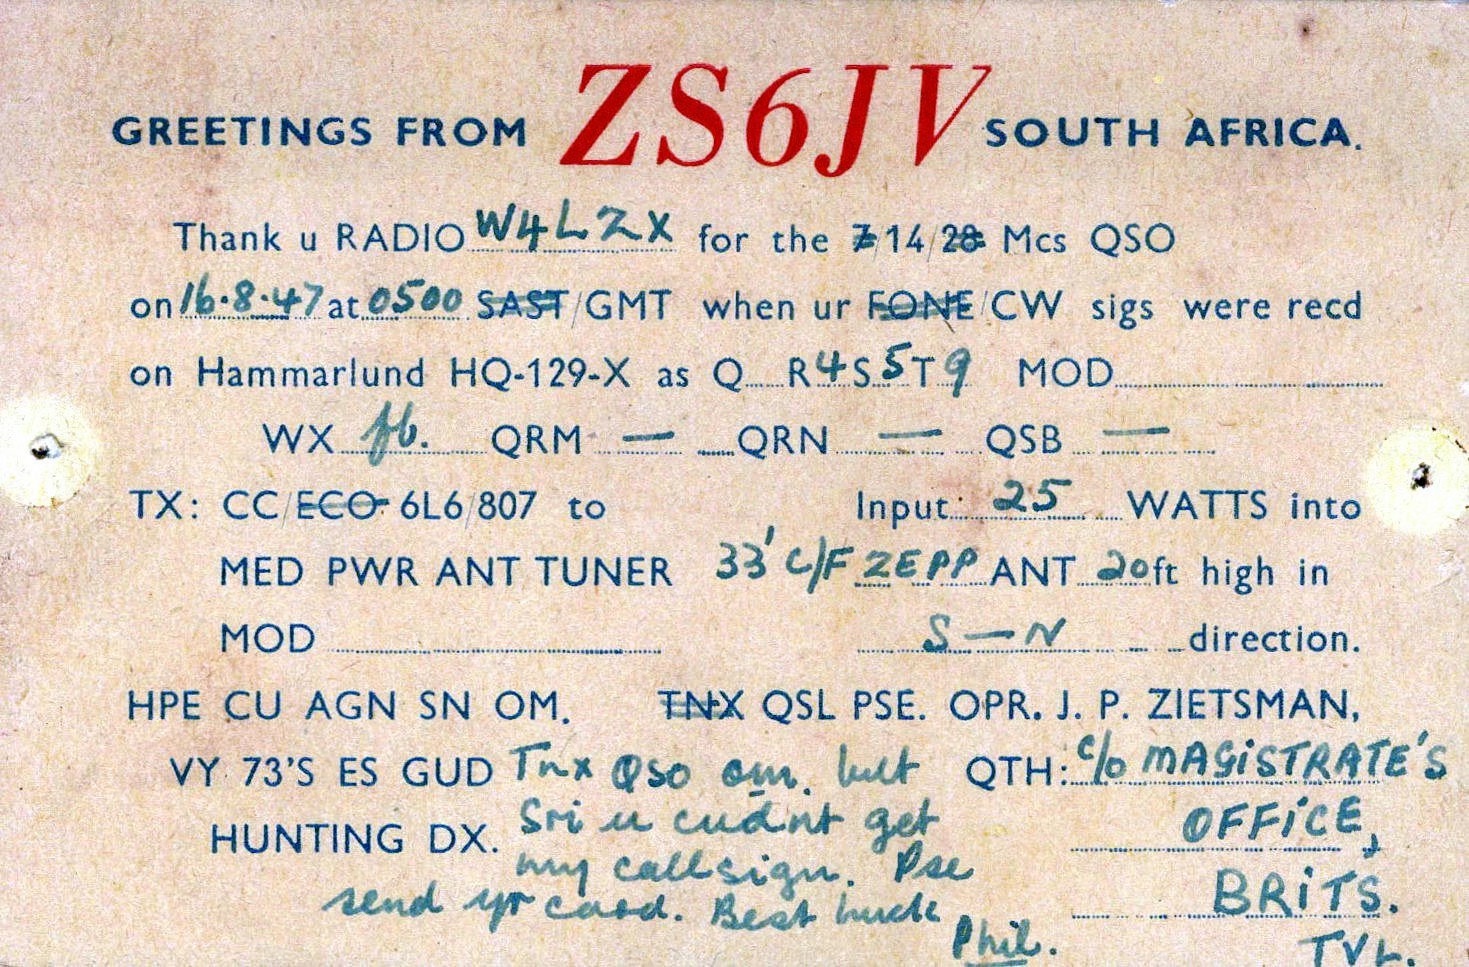 GREETINGS FROM ZS6JV SOUTH AFRICA.
Thank u RADIO W4LZX for the 7/14/28 Mcs QSO
on 16.8.47 at 0500 SAST/GMT when ur FONE/CW sigs were recd
on Hammarlund HQ-129-X as Q R4S5T9 MOD
WX fb. QRM — QRN — QSB —
TX: CC/ECO 6L6/807 to Input 25 WATTS into
MED PWR ANT TUNER 33' C/F ZEPP ANT 20ft high in
MOD S—N direction.
HPE CU AGN SN OM. TNX QSL PSE. OPR. J. P. ZIETSMAN,
VY 73'S ES GUD Tnx QSO om. but QTH: c/o MAGISTRATE'S
HUNTING DX. Sri u cudnt get OFFICE,
my callsign. Pse
send yr card. Best luck BRITS.
Phil. TVL.